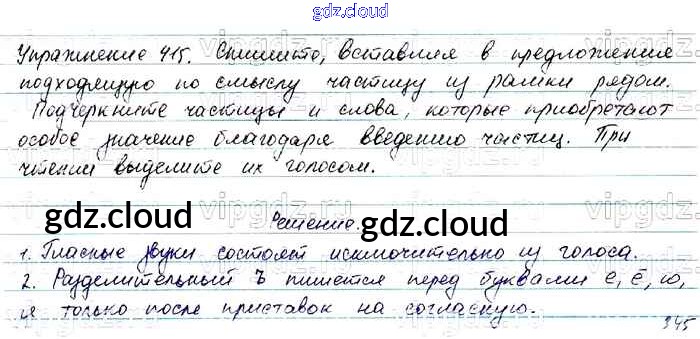 gdz.cloud
Упражнение 415. Спишите, вставляя в предложение
подходящую по смыслу частицу из рамки рядом.
Подчеркните частицы и слова, которые приобретают
особое значение благодаря введению частиц. При
чтении выделите их голосом.
gdz.cloud Решение. gdz.cloud
1. Гласные звуки состоят исключительно из голоса.
2. Разделительный ъ пишется перед буквами е, ё, ю,
я только после приставок на согласную.
345